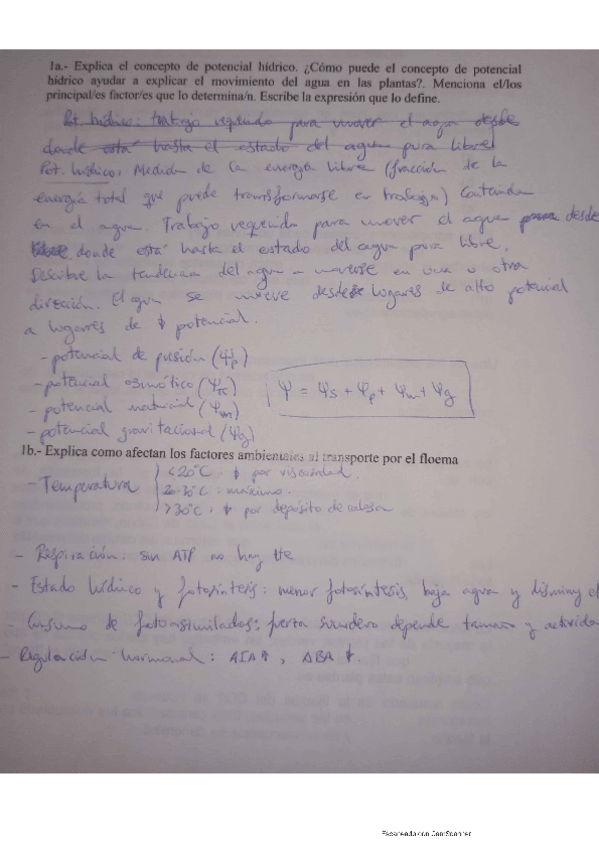 1a.- Explica el concepto de potencial hídrico. ¿Cómo puede el concepto de potencial
hídrico ayudar a explicar el movimiento del agua en las plantas?. Menciona el/los
principal/es factor/es que lo determina/n. Escribe la expresión que lo define.
Pot. hídrico: trabajo requerido para mover el agua desde
donde está hasta el estado del agua pura libre
Pot. hídrico: Medida de la energía libre (fracción de la
energía total que puede transformarse en trabajo) contenida
en el agua. Trabajo requerido para mover el agua desde
donde está hasta el estado del agua pura libre.
Describe la tendencia del agua a moverse en una u otra
dirección. El agua se mueve desde lugares de alto potencial
a lugares de ↓ potencial.
- potencial de presión (Ψp)
- potencial osmótico (Ψπ)
- potencial matricial (Ψm)
- potencial gravitacional (Ψg)
Ψ = Ψs + Ψp + Ψm + Ψg
1b.- Explica como afectan los factores ambientales al transporte por el floema
- Temperatura
<20°C. ↓ por viscosidad.
20-30°C: máximo.
>30°C: ↓ por depósito de calosa
- Respiración: sin ATP no hay tte
- Estado hídrico y fotosíntesis: menor fotosíntesis, baja agua y disminuye el
- Consumo de fotoasimilados: fuerza sumidero depende tamaño y activida
- Regulación hormonal: AIA↑, ABA↓.
Escaneado con CamScanner